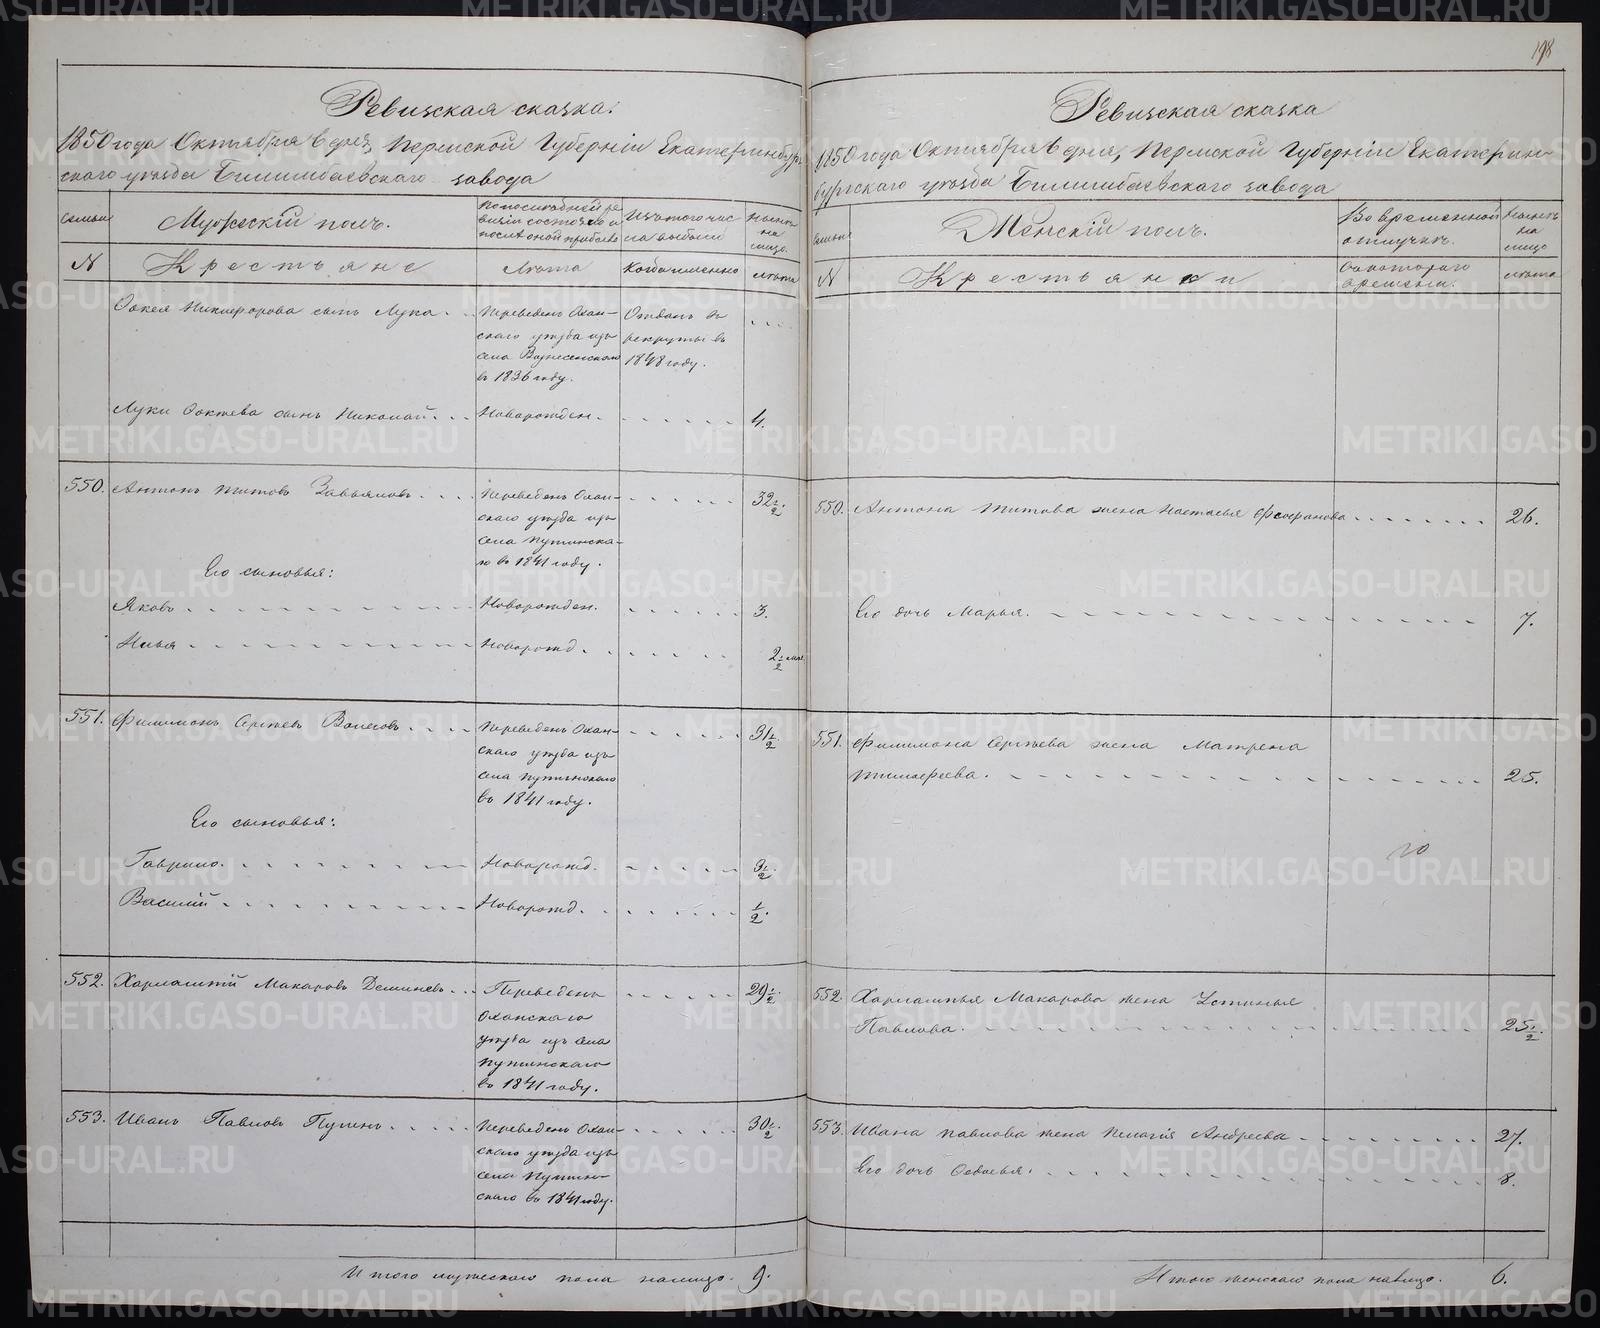 198
Ревизская сказка.
1850 года Октября 6 дня, Пермской Губерніи Екатеринбург-
скаго уезда Билимбаевскаго завода
Семьи
Мужескій полъ.
По последней ре-
визіи состояло и
после оной прибыло
Изъ того чис
ла выбыли
Ныне
на
лицо.
N
Крестьяне
Лета
Когда именно
лета
Фокея Никифорова сынъ Лука.
Переведенъ Охан-
скаго уезда изъ
села Вознесенскаго
въ 1836 году.
Отданъ въ
рекруты въ
1848 году.
Луки Фокеева сынъ Николай.
Новорожден.
4.
550.
Антонъ Титовъ Завьяловъ
Переведенъ Охан-
скаго уезда изъ
села Путинска-
го въ 1841 году.
32 1/2.
Его сыновья:
Яковъ
Новорожден.
3.
Илья
Новорожд.
2 1/2 мес.
551.
Филимонъ Сергеевъ
Переведенъ Охан-
скаго уезда изъ
села Путинскаго
въ 1841 году.
31 1/2.
Его сыновья:
Гаврило.
Новорожд.
3 1/2.
Василій
Новорожд.
1/2.
552.
Харлампій Макаровъ Деменевъ
Переведенъ
Оханскаго
уезда изъ села
Путинскаго
въ 1841 году.
29 1/2.
553.
Иванъ Павловъ
Переведенъ Охан-
скаго уезда изъ
села Путин-
скаго въ 1841 году.
30 1/2.
Итого мужескаго пола налицо.
9.
Ревизская сказка
1850 года Октября 6 дня, Пермской Губерніи Екатерин-
бургскаго уезда Билимбаевскаго завода
Семьи
Женскій полъ.
Во временной
отлучке.
Ныне
на
лицо
N
Крестьянки
Съ котораго
времени.
лета
550.
Антона Титова жена Настасья Феофанова
26.
Его дочь Марья.
7.
551.
Филимона Сергеева жена Матрена
Тимофеева.
25.
552.
Харлампья Макарова жена Устинья
Павлова.
25 1/2.
553.
Ивана Павлова жена Пелагія Андреева
27.
Его дочь Федосья.
8.
Итого женскаго пола налицо.
6.
METRIKI.GASO-URAL.RU